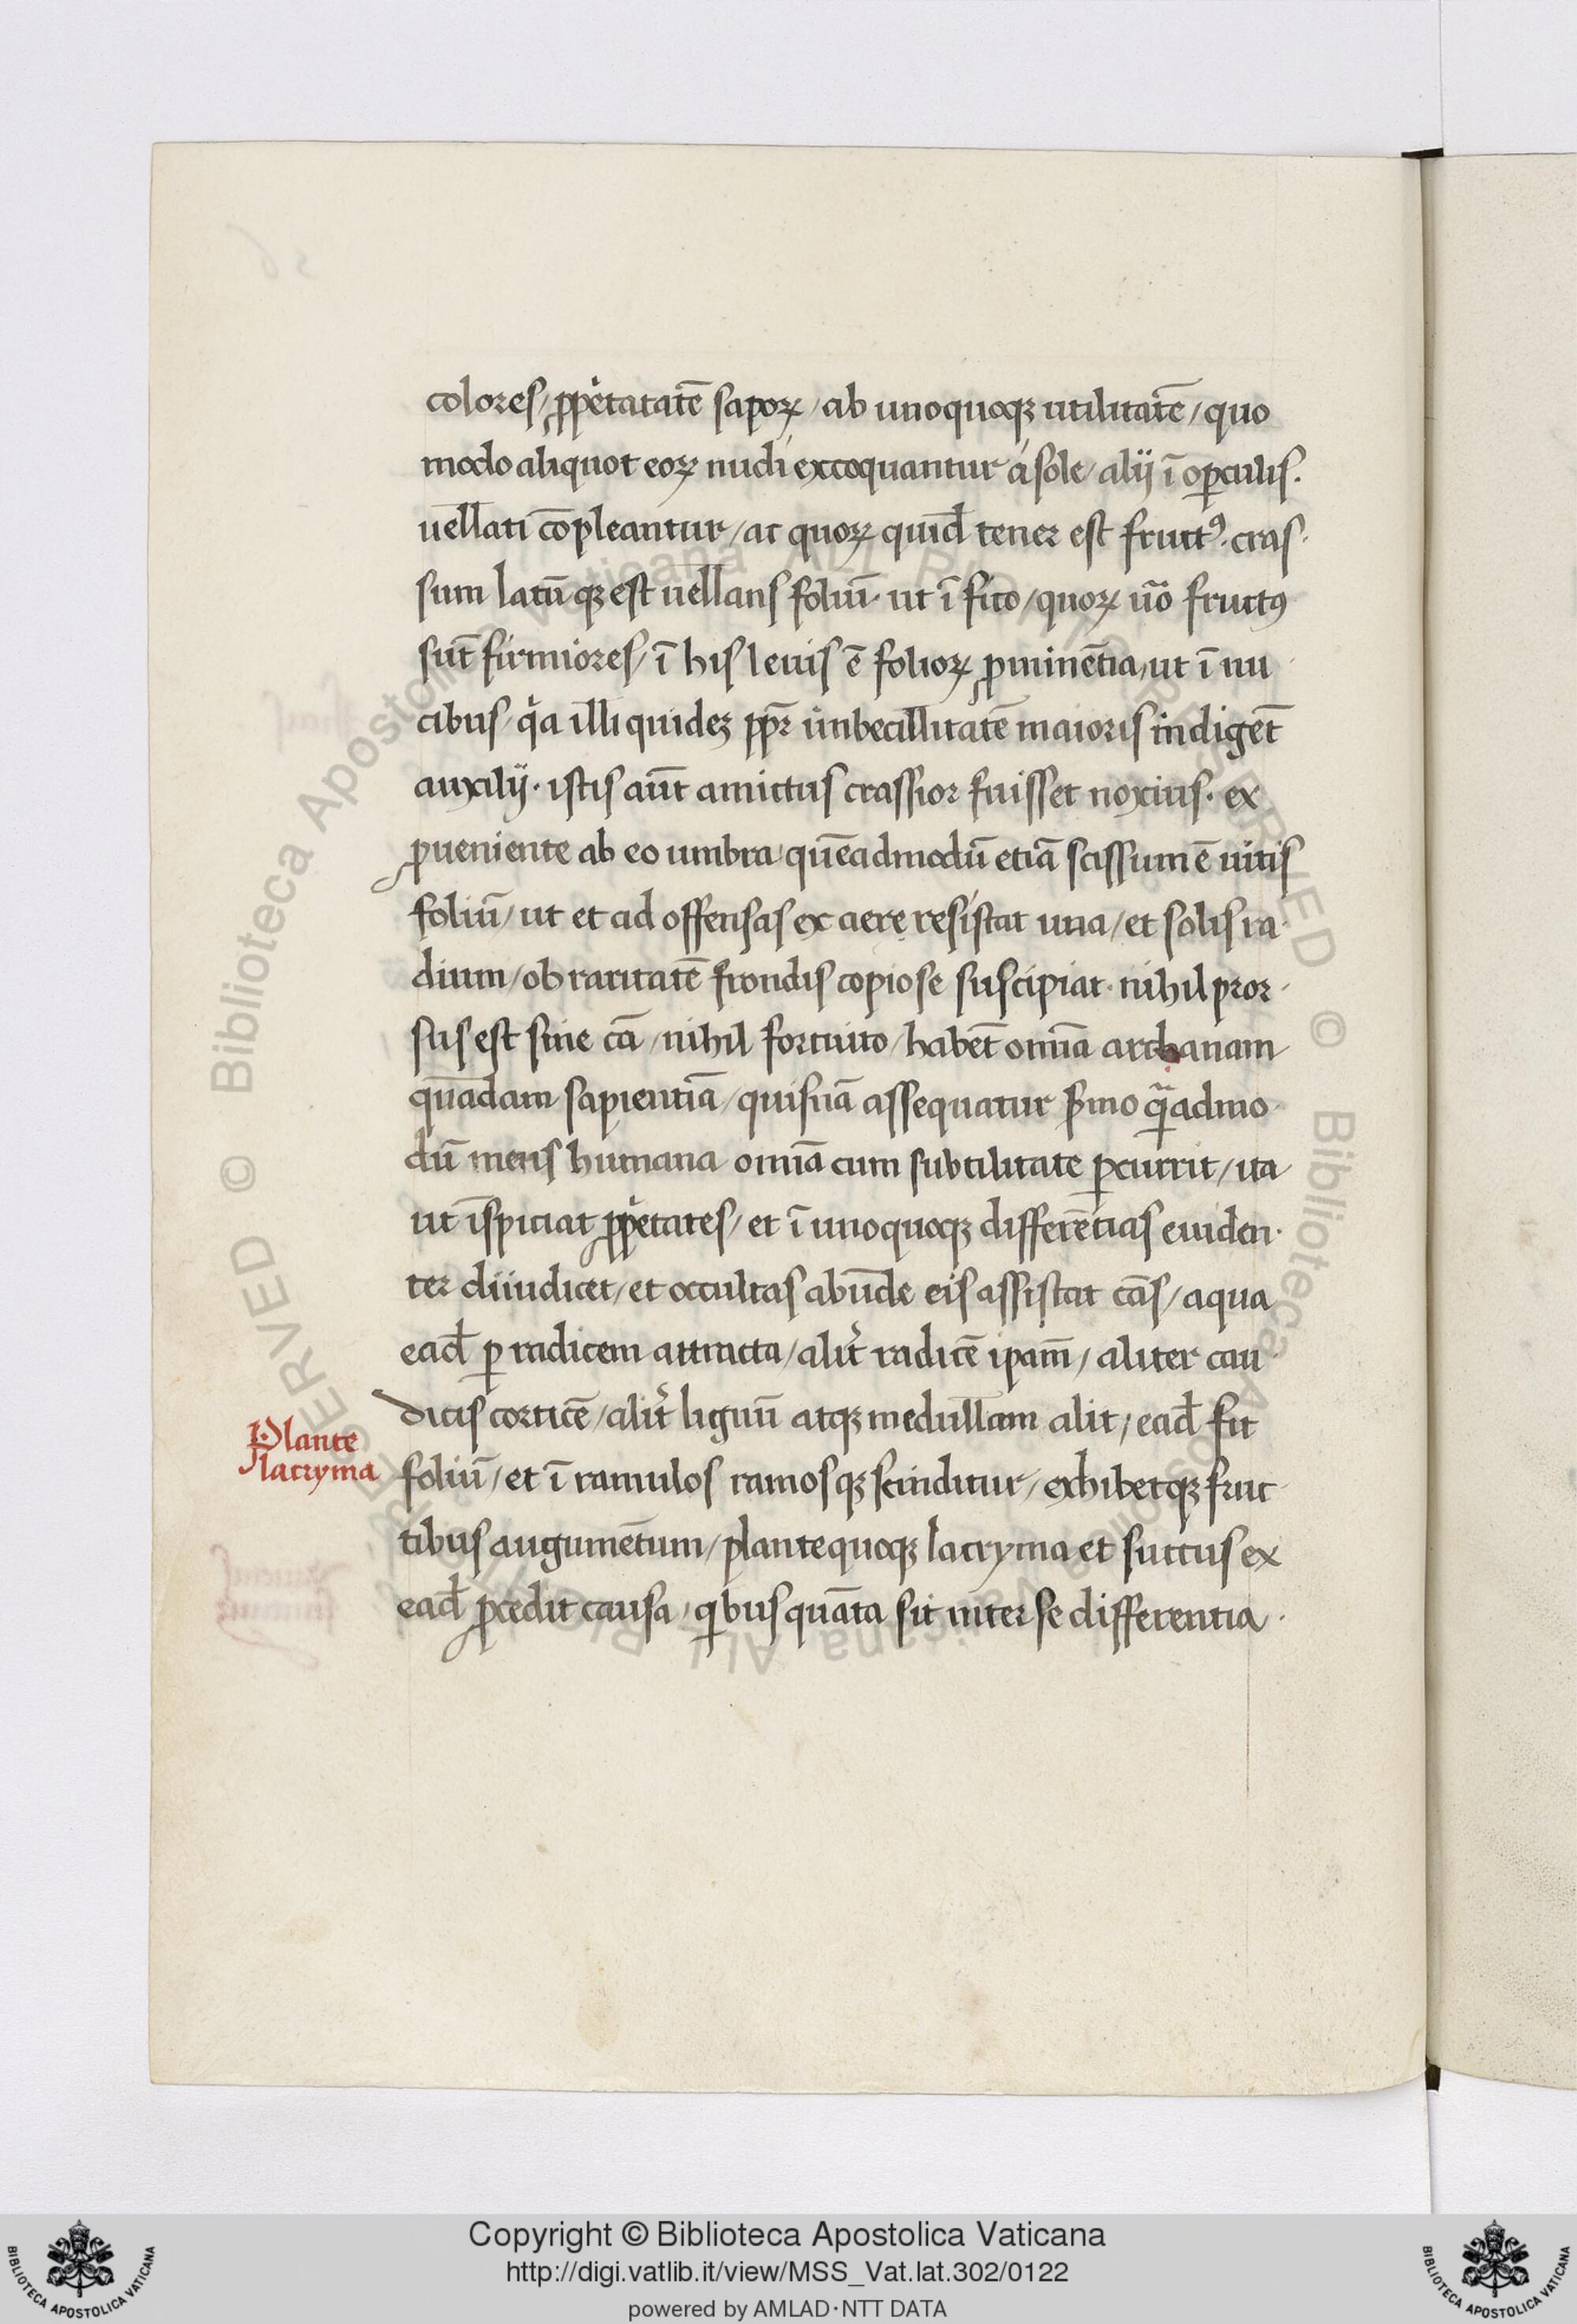 colores / ꝓp̾etatatē sapoꝝ / ab unoquoqꝫ utilitatē / quo
modo aliquot eoꝝ nudi excoquantur á sole / alij ī oꝑculis.
uellati cōpleantur / ac quoꝝ quid̄ tener est fructꝰ. cras-
sum latū qꝫ est uellans foliū. ut ī fico / quoꝝ ūo fructꝰ
sūt firmiores / ī his leuis ē folioꝝ ꝓminētia, ut ī nu
cibus / qͥa illi quidеꝫ ꝓpr̄ imbecillitatē maioris indigēt
auxilij. istis aūt amictus crassior fuisset noxius. ex
ꝓueniente ab eo umbra. quēadmodū etiā scissum ē uitis
foliū / ut et ad offensas ex aere resistat una / et solis ra-
dium / ob raritatē frondis copiose suscipiat. nihil pror-
sus est sine cā / nihil fortuito / habēt omīa archanam
quādam sapientiā / quisnā assequatur ẜmo qͣadmo-
dū mens humana omīa cum subtilitate ꝑcurrit / ita
ut īspiciat ꝓp̾etates / et ī unoquoqꝫ differētias euiden-
ter diiudicet / et occultas abūde eis assistat cās / aqua
ead̄ ꝑ radicem attracta / alit̾ radicē ipam̄ / aliter cau-
dicis corticē / alit̾ lignū atqꝫ medullam alit / ead̄ fit
foliū / et ī ramulos ramosqꝫ scinditur / exhibetqꝫ fruc-
tibus augumētum / plante quoqꝫ lacryma et succus ex
ead̄ ꝓcedit causa / qͥbus quāta sit inter se differentia.
Plante
lacryma
Copyright © Biblioteca Apostolica Vaticana
http://digi.vatlib.it/view/MSS_Vat.lat.302/0122
powered by AMLAD·NTT DATA
BIBLIOTECA APOSTOLICA VATICANA
BIBLIOTECA APOSTOLICA VATICANA